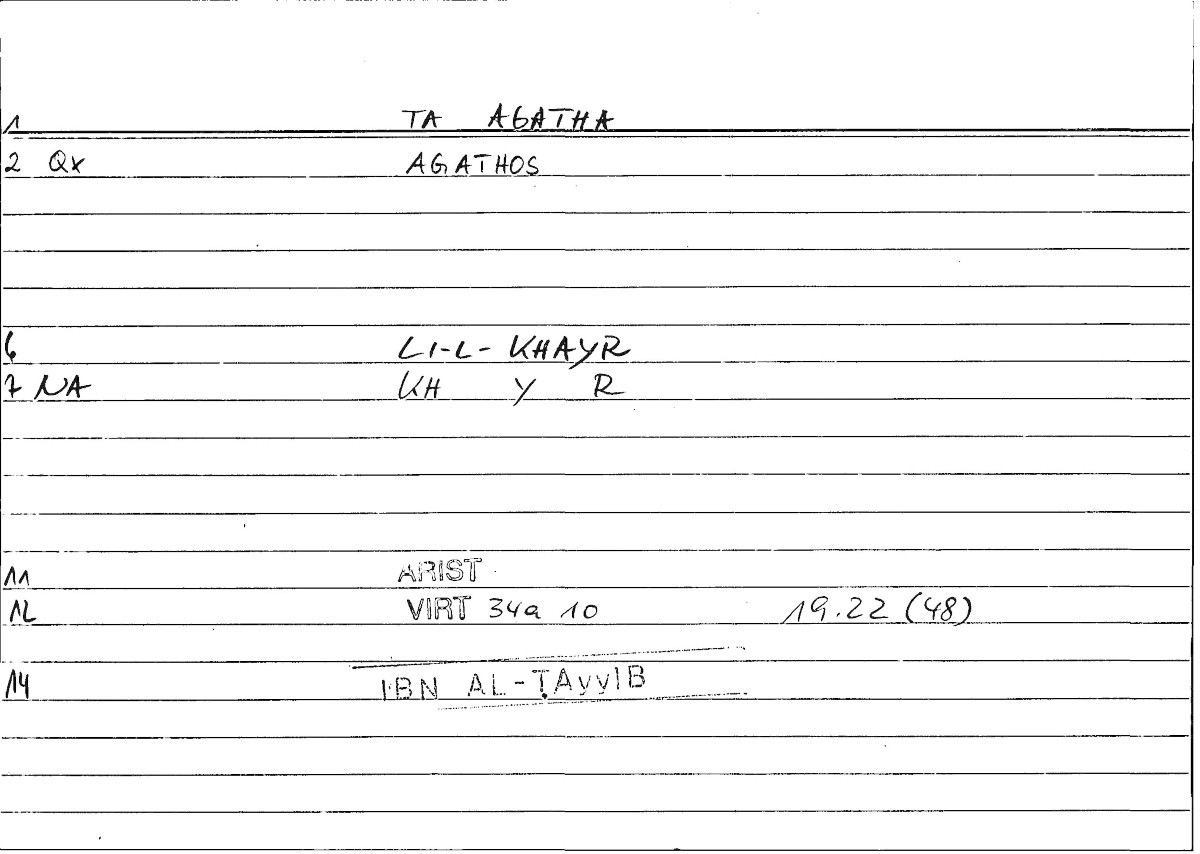 1 TA AGATHA
2 Qx AGATHOS
6 LI-L-KHAYR
7 NA KH Y R
11 ARIST
12 VIRT 34a 10 19.22 (48)
14 IBN AL-ṬAyyIB